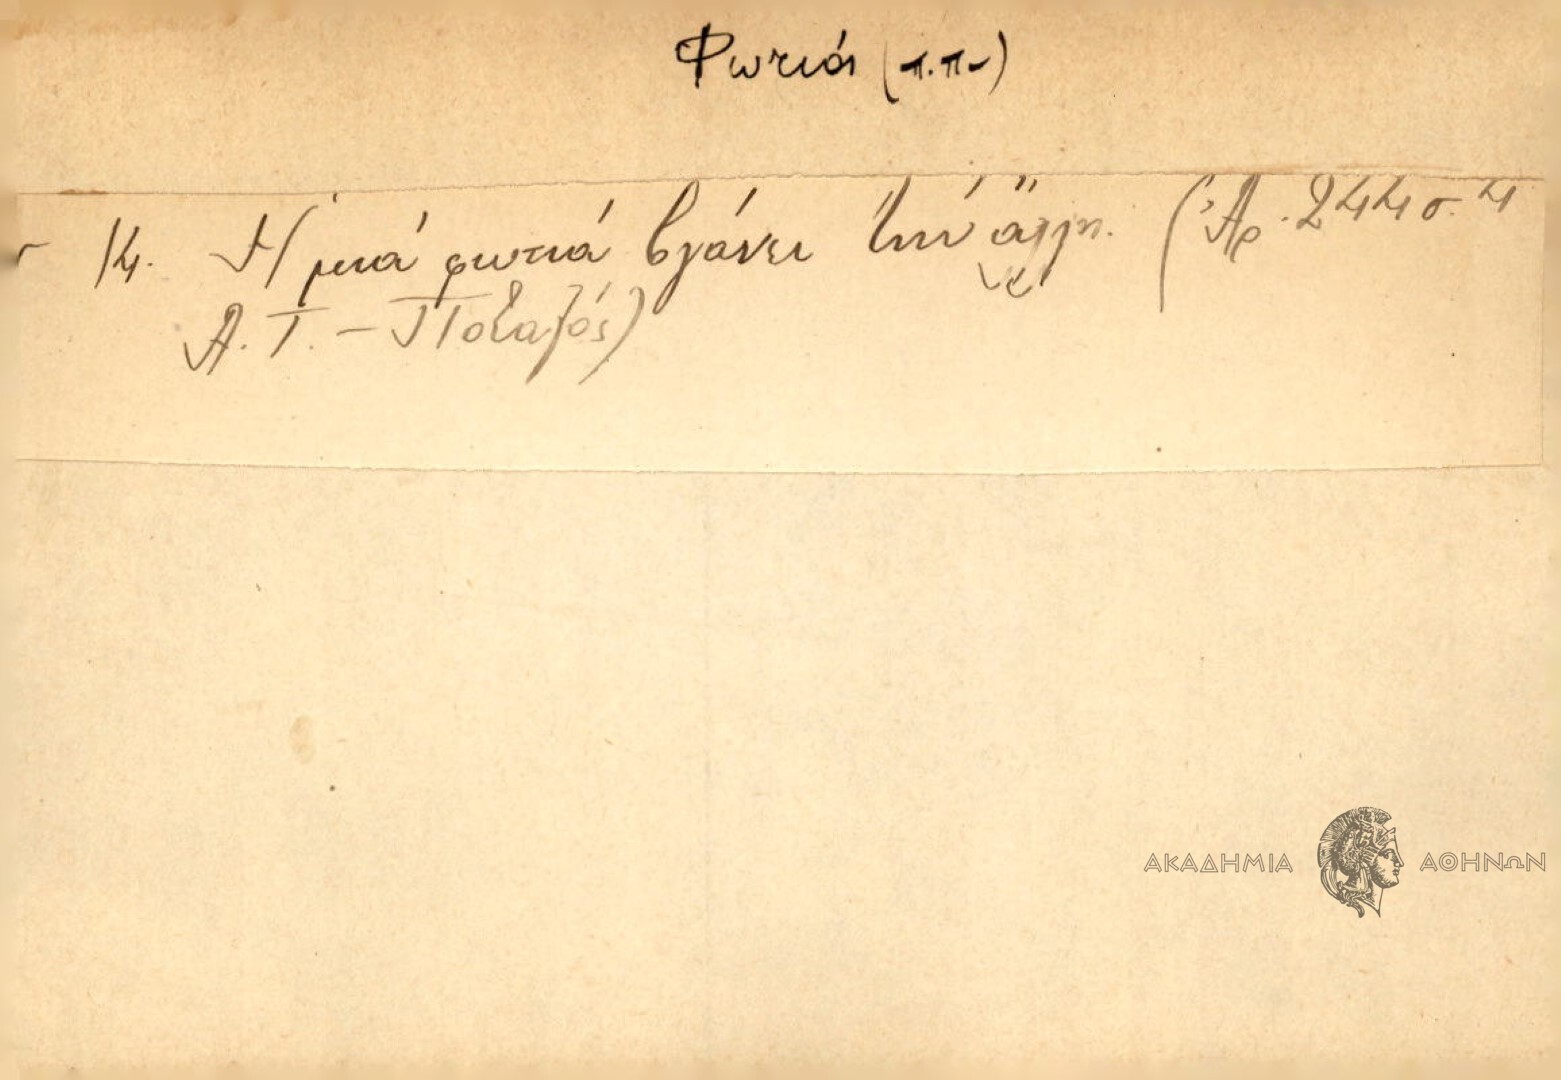 Φωτιά (π.π.)
14. Ἡ μιά φωτιά βγάνει τήν ἄλλη. (Ἀρ. 244 σ. 4
Α. Τ. – Ποταμός)
ΑΚΑΔΗΜΙΑ ΑΘΗΝΩΝ